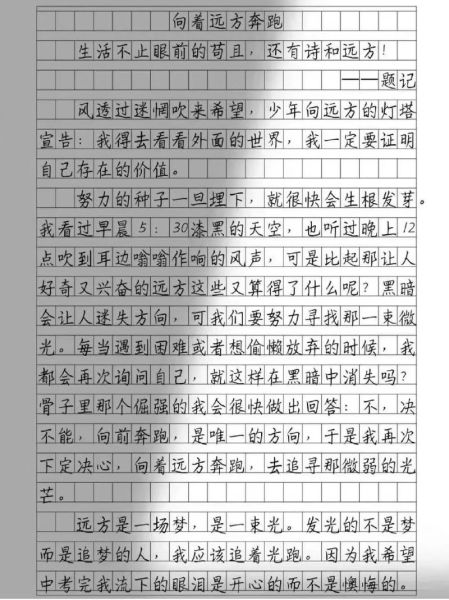 向着远方奔跑
生活不止眼前的苟且，还有诗和远方！
——题记
风透过迷惘吹来希望，少年向远方的灯塔
宣告：我得去看看外面的世界，我一定要证明
自己存在的价值。
努力的种子一旦埋下，就很快会生根发芽。
我看过早晨5：30漆黑的天空，也听过晚上12
点吹到耳边嗡嗡作响的风声，可是比起那让人
好奇又兴奋的远方这些又算得了什么呢？黑暗
会让人迷失方向，可我们要努力寻找那一束微
光。每当遇到困难或者想偷懒放弃的时候，我
都会再次询问自己，就这样在黑暗中消失吗？
骨子里那个倔强的我会很快做出回答：不，决
不能，向前奔跑，是唯一的方向，于是我再次
下定决心，向着远方奔跑，去追寻那微弱的光
芒。
远方是一场梦，是一束光。发光的不是梦
而是追梦的人，我应该追着光跑。因为我希望
中考完我流下的眼泪是开心的而不是懊悔的。